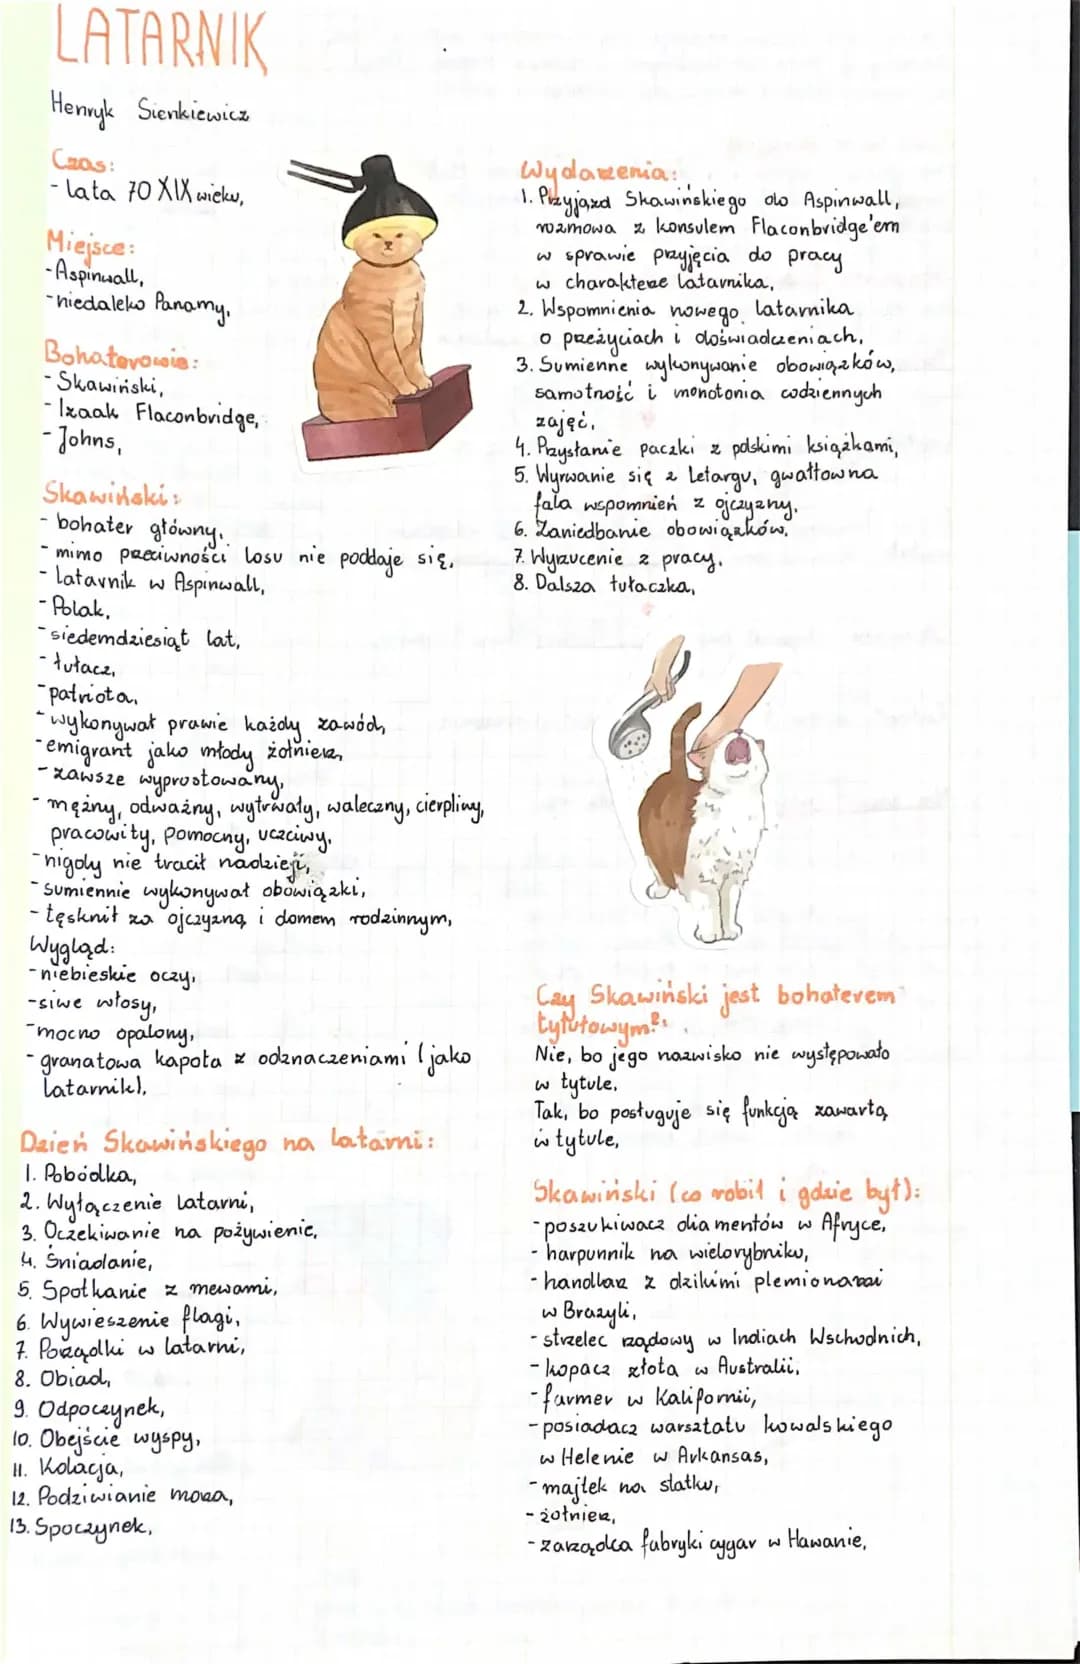 LATARNIK
Henryk Sienkiewicz
Czas:
- Lata 70 XIX wieku,
Miejsce:
- Aspinwall,
- niedaleko Panamy,
Bohaterowie:
- Skawiński,
- Izaak Flaconbridge,
- Johns,
Skawiński:
- bohater główny,
- mimo przeciwności losu nie poddaje się,
- latarnik w Aspinwall,
- Polak,
- siedemdziesiąt lat,
- tułacz,
- patriota,
- wykonywał prawie każdy zawód,
- emigrant jako młody żołnierz,
- zawsze wyprostowany,
- mężny, odważny, wytrwały, waleczny, cierpliwy,
pracowity, pomocny, uczciwy,
- nigdy nie tracił nadzieji,
- sumiennie wykonywał obowiązki,
- tęsknił za ojczyzną i domem rodzinnym,
Wygląd:
- niebieskie oczy,
- siwe włosy,
- mocno opalony,
- granatowa kapota z odznaczeniami (jako
latarnik),
Dzień Skawińskiego na latarni:
1. Pobódka,
2. Wyłączenie latarni,
3. Oczekiwanie na pożywienie,
4. Śniadanie,
5. Spotkanie z mewami,
6. Wywieszenie flagi,
7. Porządki w latarni,
8. Obiad,
9. Odpoczynek,
10. Obejście wyspy,
11. Kolacja,
12. Podziwianie morza,
13. Spoczynek,
Wydarzenia:
1. Przyjazd Skawińskiego do Aspinwall,
rozmowa z konsulem Flaconbridge'em
w sprawie przyjęcia do pracy
w charakterze latarnika,
2. Wspomnienia nowego latarnika
o przeżyciach i doświadczeniach,
3. Sumienne wykonywanie obowiązków,
samotność i monotonia codziennych
zajęć,
4. Przysłanie paczki z polskimi książkami,
5. Wyrwanie się z letargu, gwałtowna
fala wspomnień z ojczyzny,
6. Zaniedbanie obowiązków,
7. Wyrzucenie z pracy,
8. Dalsza tułaczka,
Czy Skawiński jest bohaterem
tytułowym?:
Nie, bo jego nazwisko nie występowało
w tytule,
Tak, bo posługuje się funkcją zawartą
w tytule,
Skawiński (co robił i gdzie był):
- poszukiwacz diamentów w Afryce,
- harpunnik na wielorybniku,
- handlarz z dzikimi plemionami
w Brazyli,
- strzelec rządowy w Indiach Wschodnich,
- kopacz złota w Australii,
- farmer w Kalifornii,
- posiadacz warsztatu kowalskiego
w Helenie w Arkansas,
- majtek na statku,
- żołnierz,
- zarządca fabryki cygar w Hawanie,